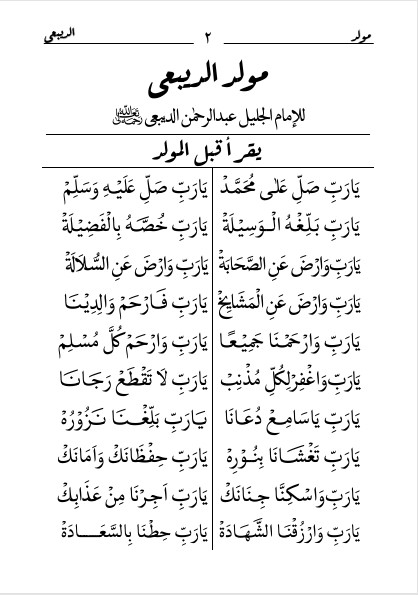 مولد ٢ الديبعى
مولد الديبعى
للإمام الجليل عبدالرحمٰن الديبعى
يقرأ قبل المولد
يَارَبِّ صَلِّ عَلٰى مُحَمَّدْ يَارَبِّ صَلِّ عَلَيْهِ وَسَلِّمْ
يَارَبِّ بَلِّغْهُ الْوَسِيْلَةْ يَارَبِّ خُصَّهُ بِالْفَضِيْلَةْ
يَارَبِّ وَارْضَ عَنِ الصَّحَابَةْ يَارَبِّ وَارْضَ عَنِ السُّلَالَةْ
يَارَبِّ وَارْضَ عَنِ الْمَشَايِخْ يَارَبِّ فَارْحَمْ وَالِدِيْنَا
يَارَبِّ وَارْحَمْنَا جَمِيْعًا يَارَبِّ وَارْحَمْ كُلَّ مُسْلِمْ
يَارَبِّ وَاغْفِرْ لِكُلِّ مُذْنِبْ يَارَبِّ لَا تَقْطَعْ رَجَانَا
يَارَبِّ يَاسَامِعْ دُعَانَا يَارَبِّ بَلِّغْنَا نَزُوْرُهْ
يَارَبِّ تَغْشَانَا بِنُوْرِهْ يَارَبِّ حِفْظَانَكْ وَاَمَانَكْ
يَارَبِّ وَاسْكِنَّا جِنَانَكْ يَارَبِّ اَجِرْنَا مِنْ عَذَابِكْ
يَارَبِّ وَارْزُقْنَا الشَّهَادَةْ يَارَبِّ حِطْنَا بِالسَّعَادَةْ